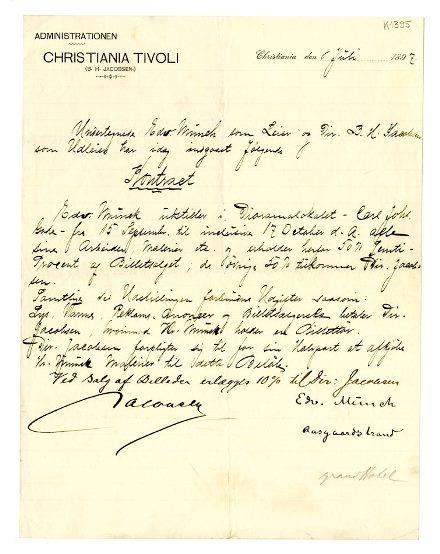 K1395
ADMINISTRATIONEN
CHRISTIANIA TIVOLI
(B. H. JACOBSEN.)
Christiania den 8 Juli 1897
Undertegnede Edv. Munch som Leier og Dir. B. H. Jacobsen
som Udleier har idag indgaaet følgende
Kontract
Edv. Munch udstiller i Dioramalokalet - Carl Joh.
Gade - fra 15 Septembr. til inclusive 17 October d. A. alle
sine Arbeider, Malerier etc. og erholder herfor 50% Femti-
Procent af Billetsalget; de øvrige 50% tilkommer Dir. Jacob-
sen.
Samtlige til Udstillingen forbundne Udgifter saasom:
Lys, Varme, Reklame, Annoncer og Billetteuserske betaler Dir.
Jacobsen, mod Hr. Munch holder en
Dir. Jacobsen forpligter sig til for sin Halvpart at
Hr. Munch til dette
Ved Salg af Billeder erlægges 10% til Dir. Jacobsen
Jacobsen
Edv. Munch
Aasgaardstrand
Grand Hotel